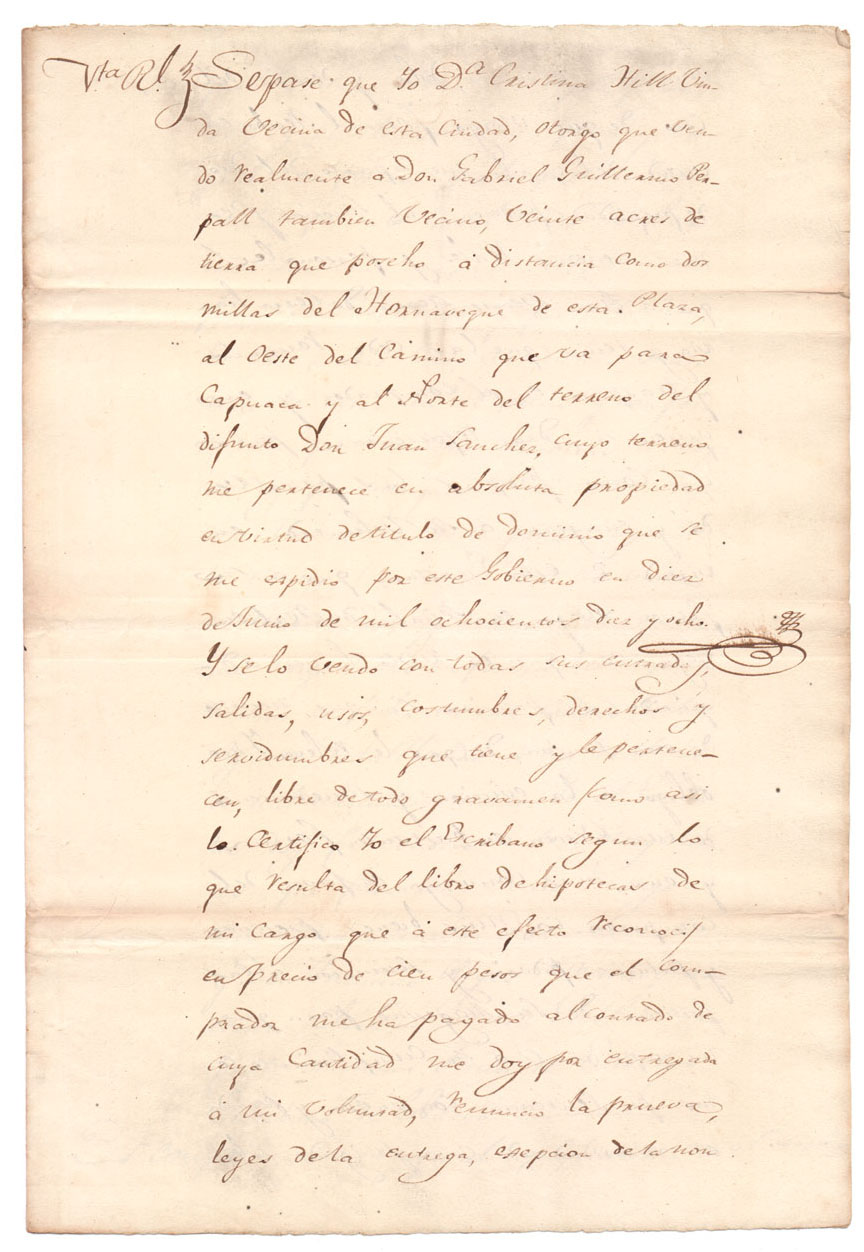 Vta Rl. Sepase que Yo D.a Cristina Hill Viu-
da Vecina de esta Ciudad, otorgo que ven-
do realmente á Don Gabriel Guillermo Per-
pall tambien Vecino, Veinte acres de
tierra que poseho á distancia como dos
millas del Hornaveque de esta Plaza,
al Oeste del Camino que va para
Capuaca y al Norte del terreno del
difunto Don Juan Sanchez, cuyo terreno
me pertenece en absoluta propiedad
en virtud de titulo de dominio que se
me espidio por este Gobierno en diez
de Junio de mil ochocientos diez y ocho.
Y se lo vendo con todas sus entradas,
salidas, usos, costumbres, derechos y
servidumbres que tiene y le pertene-
cen, libre de todo gravamen (como asi
lo Certifico Yo el Escribano segun lo
que resulta del libro de hipotecas de
mi Cargo que á este efecto reconoci)
en precio de cien pesos que el com-
prador me ha pagado al contado de
cuya Cantidad me doy por entregada
á mi voluntad, renuncio la prueva,
leyes de la entrega, esepcion de la non